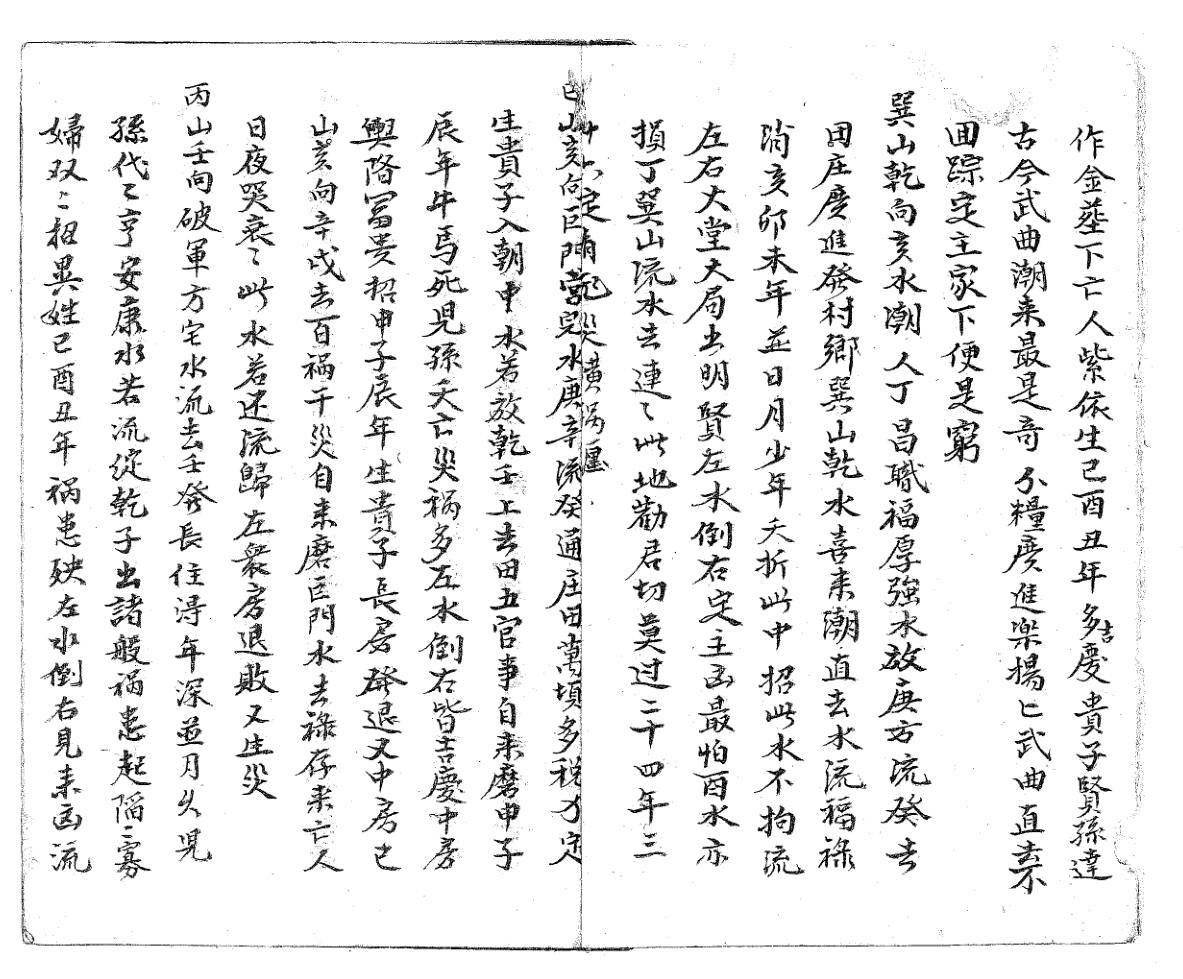 作金莝下亡人紫依生己酉丑年多吉慶貴子賢孫達
古今武曲潮来最是奇分糧廣進楽揚〻武曲直去不
囬踪定主家下便是窮
巽山乾向亥水潮人丁昌職福厚強水放庚方流癸去
田庄廣進發村鄉巽山乾水喜来潮直去水流福祿
消亥卯未年並日月少年夭折此中招此水不拘流
左右大堂大局出明賢左水倒右定主凶最怕酉水亦
損丁巽山流水去連〻此地勸居切莫过二十四年三
定災黃
巳山亥向巨門水庚辛流癸通庄田萬頃多稅
生貴子入朝中水若放乾壬上去田丑官事自来磨申子
辰年牛馬死児孫夭亡災禍多左水倒右皆吉慶中房
興隆冨貴招申子辰年生貴子長房發退又中房巳
山亥向辛戌去百禍千災自来磨巨門水去祿存来亡人
日夜哭哀〻此水若还流歸左衆房退敗又生災
丙山壬向破軍方宅水流去壬發長住淂年深並月久児
孫代〻亨安康水若流淀乾子出諸般禍患起滔〻寡
婦双〻招異姓巳酉丑年禍患殃左水倒右見来凶流